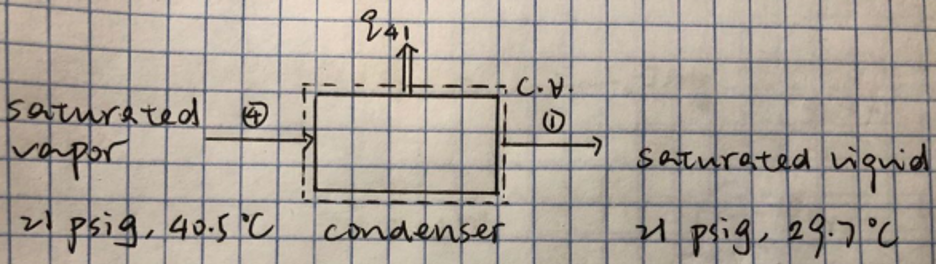 q41
C.V.
saturated
④
①
vapor
saturated liquid
21 psig, 40.5°C
condenser
21 psig, 29.7°C